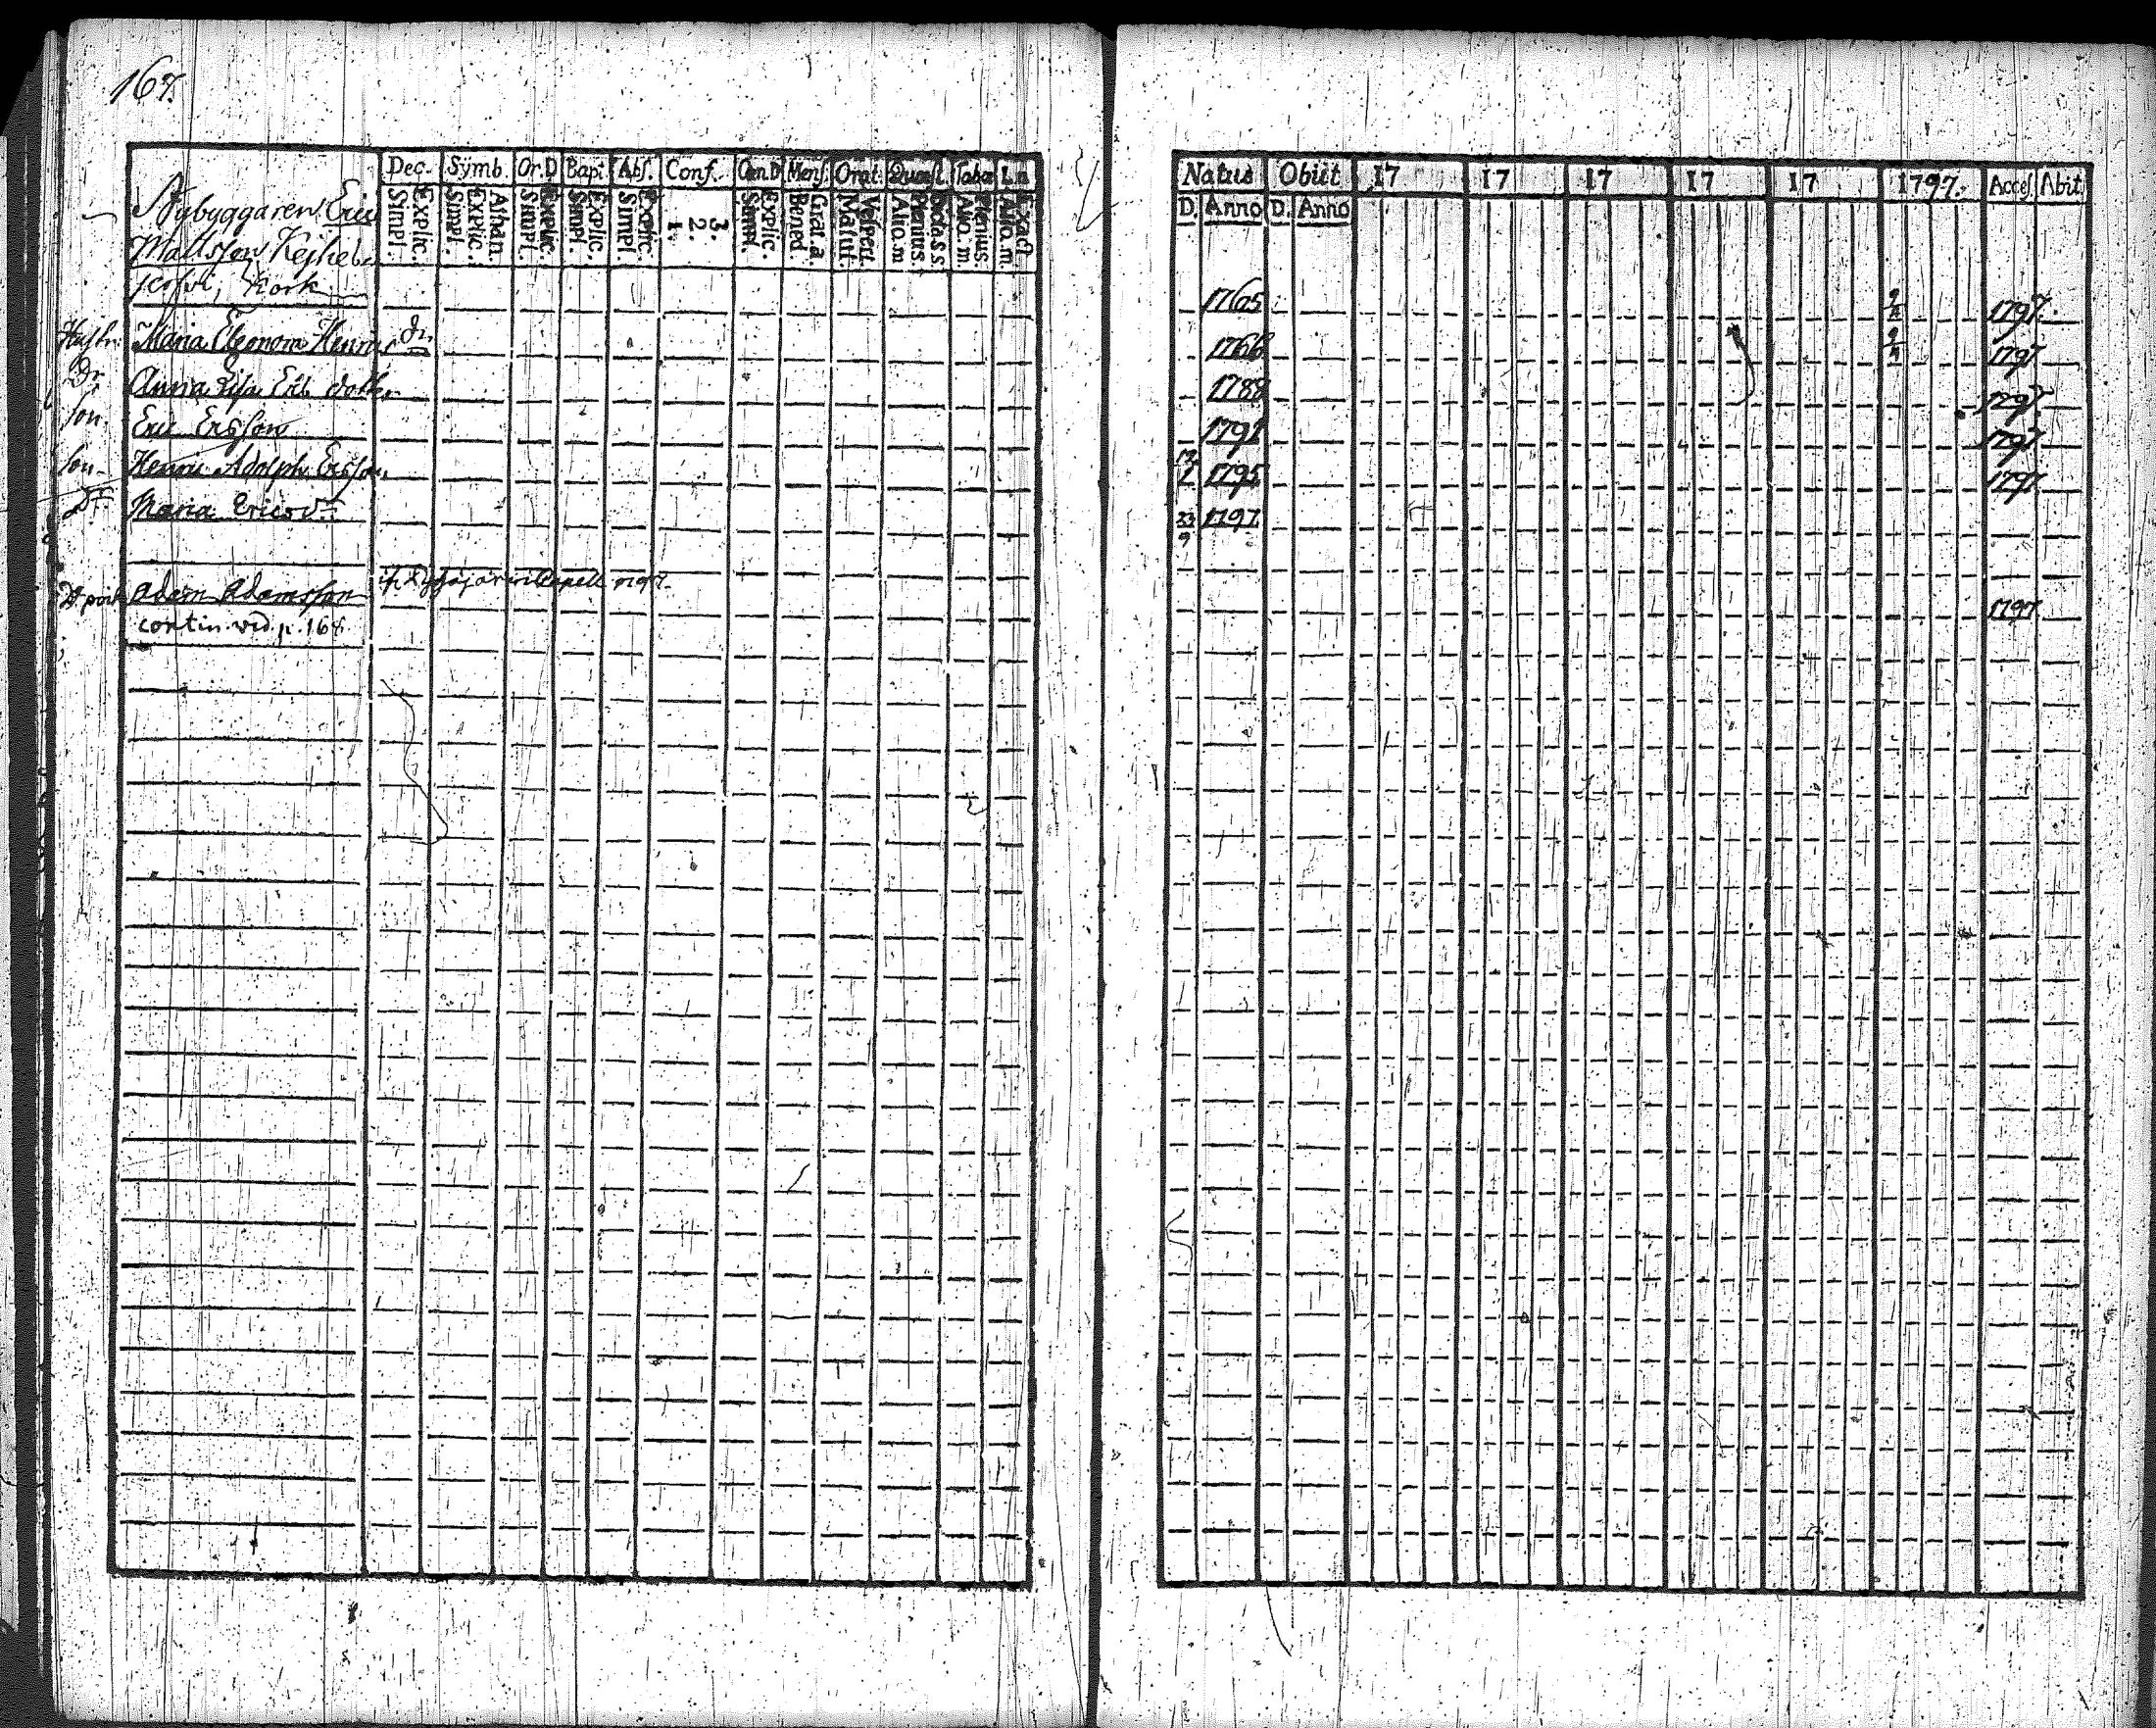 167.
Dec. Symb. Or.D Bapt. Abs. Conf. Cœn.D Mens. Orat. Quæst. Taba
Simpl. Explic. Simpl. Explic. Athan. Simpl. Explic. Simpl. Explic. Simpl. Explic. 1. 2. 3. Simpl. Explic. Bened. Grat. a. Matut. Vespert. Alio.m Plenius. Alio.m. Plenius. Alio.m. Exact
Natus Obiit 17 17 17 17 17 1797. Acces. Abit.
D. Anno D. Anno
Nybyggaren Eric
Mattsson
Kork 1765 1797.
Hustr. Maria Eleonora Henrics dr 1766 1797
Dr Anna Lisa Ers dotter 1788 1797.
Son. Eric Ersson 1791 1797
Son Henric Adolph Ersson 1795 1797
Dr. Maria Ericsd. 23/9 1797
Adam Adamsson 1797
contin. vid p. 168